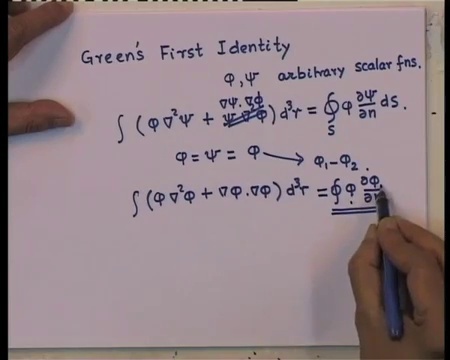 Green's First Identity
φ, ψ arbitrary scalar fns.
∇ψ.∇φ
∫ (φ ∇²ψ + ψ ∇²φ) d³r = ∮ φ ∂ψ/∂n dS.
S
φ = ψ = φ → φ₁ - φ₂ .
∫ (φ ∇²φ + ∇φ . ∇φ) d³r = ∮ φ ∂φ/∂n